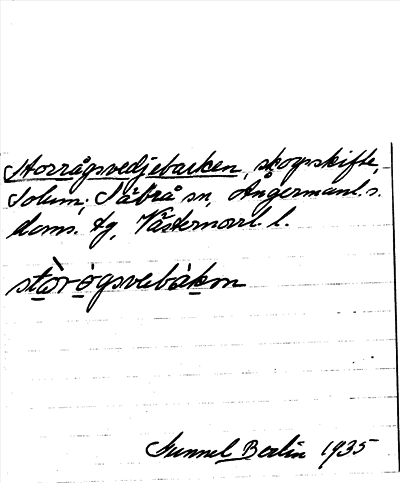 Storrågsvedjebacken, skogsskifte,
Solum; Säbrå sn, Ångermanl. s.
doms. tg, Västernorrl. l.
stòrógsvebákon
Gunnel Berlin 1935